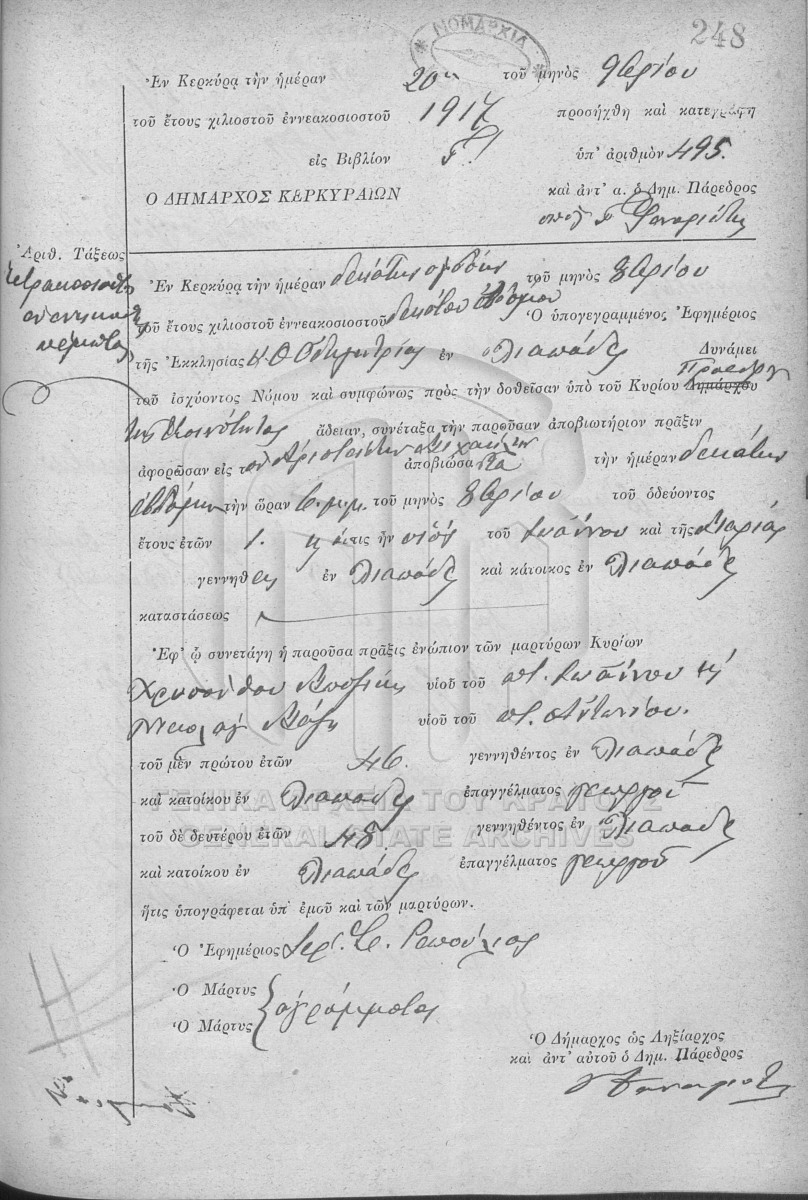 248
ΝΟΜΑΡΧΙΑ
Ἐν Κερκύρᾳ τὴν ἡμέραν 20ην τοῦ μηνὸς 9βρίου
τοῦ ἔτους χιλιοστοῦ ἐννεακοσιοστοῦ 1917 προσήχθη καὶ κατεγράφη
εἰς Βιβλίον Γ' ὑπ' ἀριθμὸν 495.
Ο ΔΗΜΑΡΧΟΣ ΚΕΡΚΥΡΑΙΩΝ καὶ ἀντ' α. ὁ Δημ. Πάρεδρος
Ἀριθ. Τάξεως
Ἐν Κερκύρᾳ τὴν ἡμέραν δεκάτην ὀγδόην τοῦ μηνὸς 8βρίου
τοῦ ἔτους χιλιοστοῦ ἐννεακοσιοστοῦ δεκάτου ἑβδόμου Ὁ ὑπογεγραμμένος Ἐφημέριος
τῆς Ἐκκλησίας Ὁδηγητρίας ἐν Λιαπάδες Δυνάμει
τοῦ ἰσχύοντος Νόμου καὶ συμφώνως πρὸς τὴν δοθεῖσαν ὑπὸ τοῦ Κυρίου Δημάρχου Προέδρου
τῆς Κοινότητος ἄδειαν, συνέταξα τὴν παροῦσαν ἀποβιωτήριον πρᾶξιν
ἀφορῶσαν εἰς τ ἀποβιώσαντα τὴν ἡμέραν δεκάτην
ἑβδόμην τὴν ὥραν 6. μ.μ. τοῦ μηνὸς 8βρίου τοῦ ὁδεύοντος
ἔτους ἐτῶν 1. τις ἦν υἱὸς τοῦ Ἰωάννου καὶ τῆς Μαρίας
γεννηθεὶς ἐν Λιαπάδες καὶ κάτοικος ἐν Λιαπάδες
καταστάσεως
Ἐφ' ᾧ συνετάγη ἡ παροῦσα πρᾶξις ἐνώπιον τῶν μαρτύρων Κυρίων
Χρυσάνθου υἱοῦ τοῦ π. Ἰωάννου κ'
Νικολάου υἱοῦ τοῦ π. Ἀντωνίου.
τοῦ μὲν πρώτου ἐτῶν 46. γεννηθέντος ἐν Λιαπάδες
καὶ κατοίκου ἐν Λιαπάδες ἐπαγγέλματος γεωργοῦ
ΓΕΝΙΚΑ ΑΡΧΕΙΑ ΤΟΥ ΚΡΑΤΟΥΣ
GENERAL STATE ARCHIVES
τοῦ δὲ δευτέρου ἐτῶν 48 γεννηθέντος ἐν Λιαπάδες
καὶ κατοίκου ἐν Λιαπάδες ἐπαγγέλματος γεωργοῦ
ἥτις ὑπογράφεται ὑπ' ἐμοῦ καὶ τῶν μαρτύρων.
Ὁ Ἐφημέριος
Ὁ Μάρτυς
Ὁ Μάρτυς ἀγράμματοι
Ὁ Δήμαρχος ὡς Ληξίαρχος
καὶ ἀντ' αὐτοῦ ὁ Δημ. Πάρεδρος